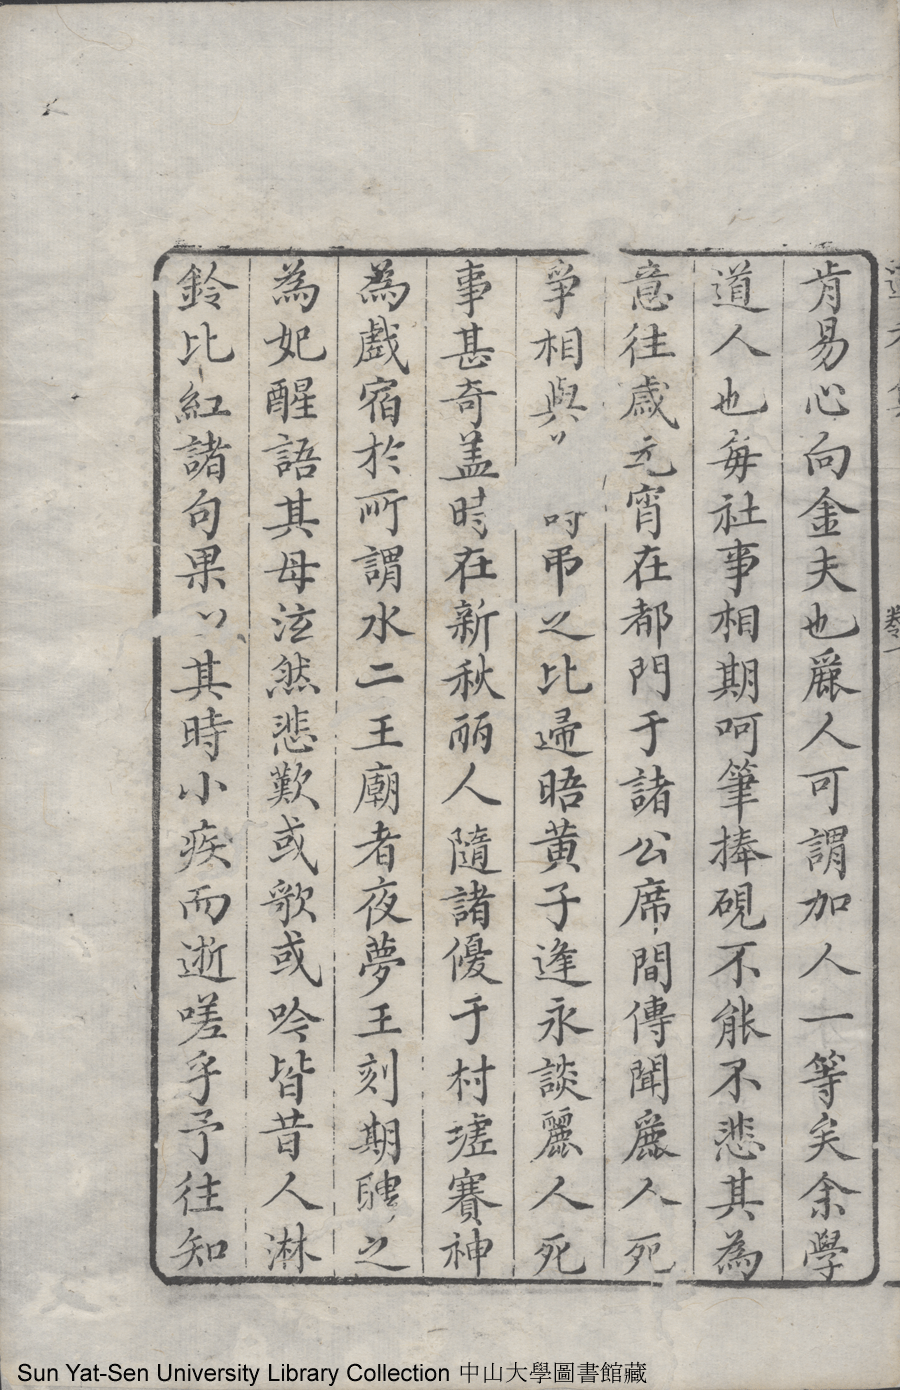 肯易心向金夫也麗人可謂加人一等矣余學
道人也每社事相期呵筆捧硯不能不悲其為
意往歲元宵在都門于諸公席間傳聞麗人死
爭相與吊之比歸晤黃子逢永談麗人死
事甚奇盖時在新秋丽人隨諸優于村墟賽神
為戲宿於所謂水二王廟者夜夢王刻期聘之
為妃醒語其母泫然悲歎或歌或吟皆昔人淋
鈴比紅諸句果以其時小疾而逝嗟乎予往知
Sun Yat-Sen University Library Collection 中山大學圖書館藏